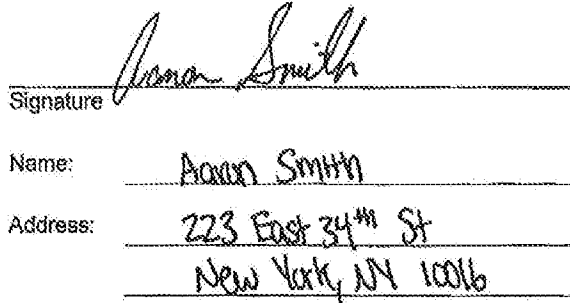 Aaron Smith
Signature
Name: Aaron Smith
Address: 223 East 34th St
New York, NY 10016